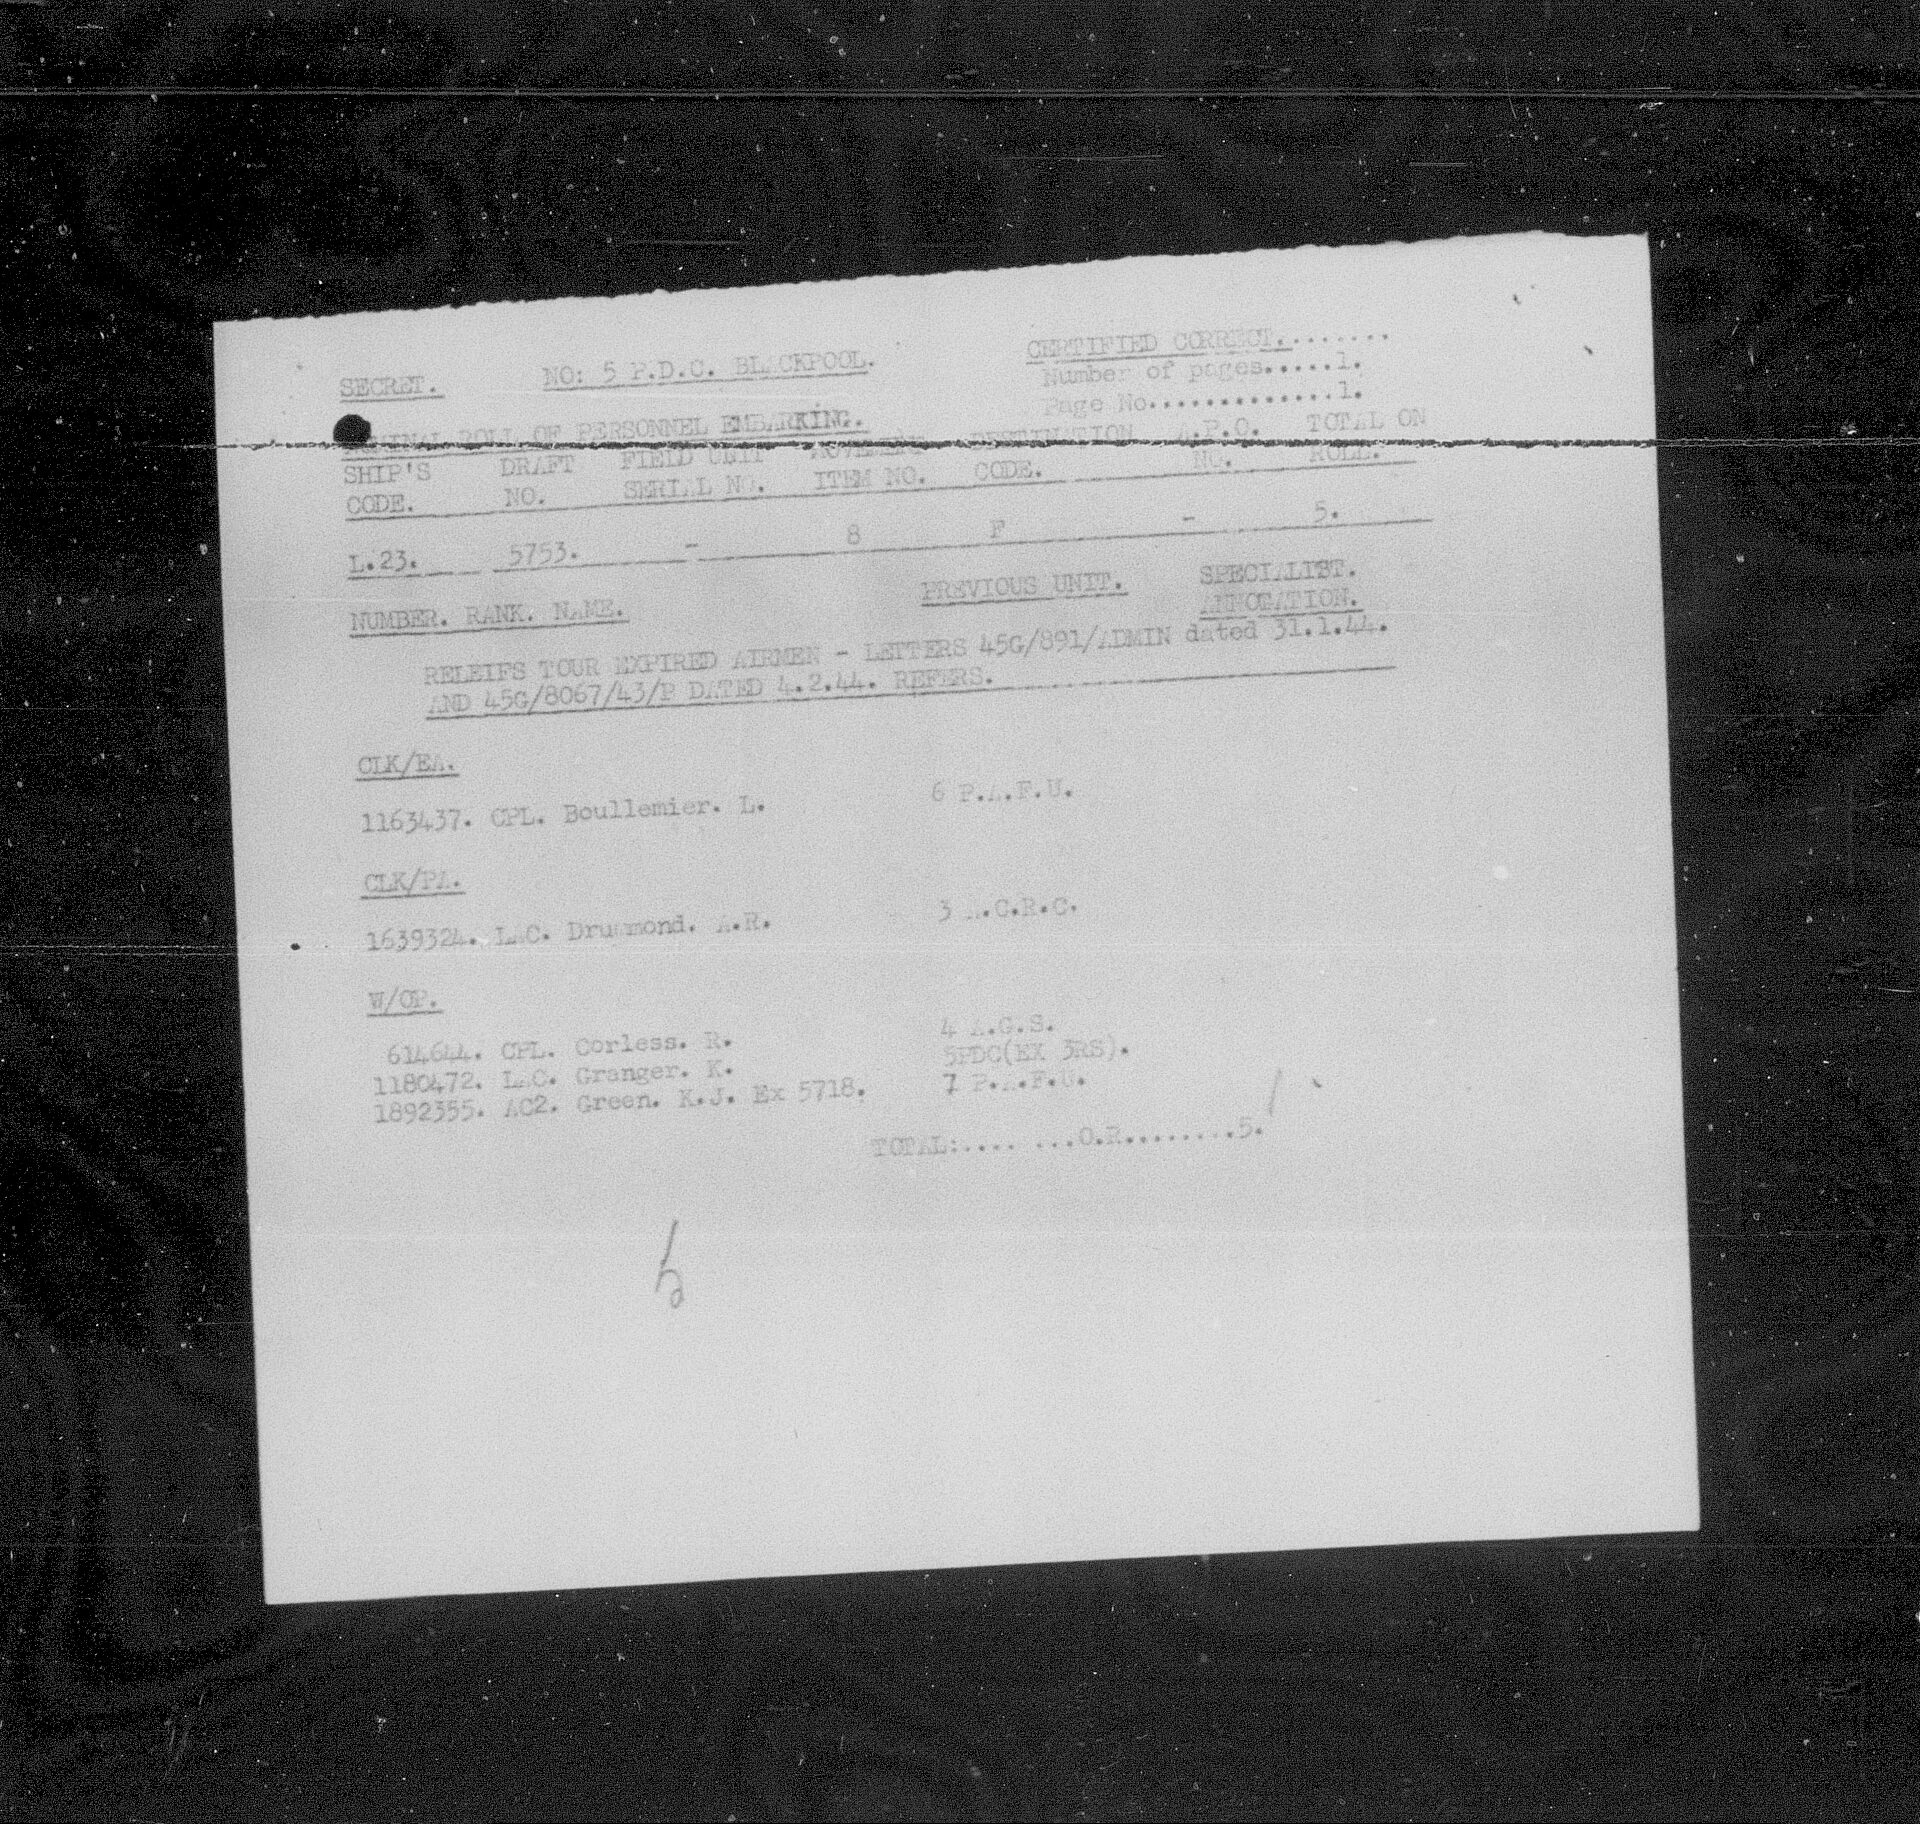 SECRET. NO: 5 P.D.C. BLACKPOOL. CERTIFIED CORRECT........
Number of pages.....1.
Page No.............1.
ROLL OF PERSONNEL EMBARKING.
SHIP'S DRAFT FIELD UNIT DESTINATION A.P.O. TOTAL ON
CODE. NO. SERIAL NO. ITEM NO. CODE. NO. ROLL.
L.23. 5753. - 8 F - 5.
NUMBER. RANK. NAME. PREVIOUS UNIT. SPECIALIST.
ANNOTATION.
RELEIFS TOUR EXPIRED AIRMEN - LETTERS 45G/891/ADMIN dated 31.1.44.
AND 45G/8067/43/P DATED 4.2.44. REFERS.
CLK/EA.
1163437. CPL. Boullemier. L. 6 P.A.F.U.
CLK/PA.
1639324. LAC. Drummond. A.R. 3 A.C.R.C.
W/OP.
614644. CPL. Corless. R. 4 A.G.S.
1180472. LAC. Granger. K. 5PDC(EX 3RS).
1892355. AC2. Green. K.J. Ex 5718. 7 P.A.F.U.
TOTAL:.... ...O.R........5.